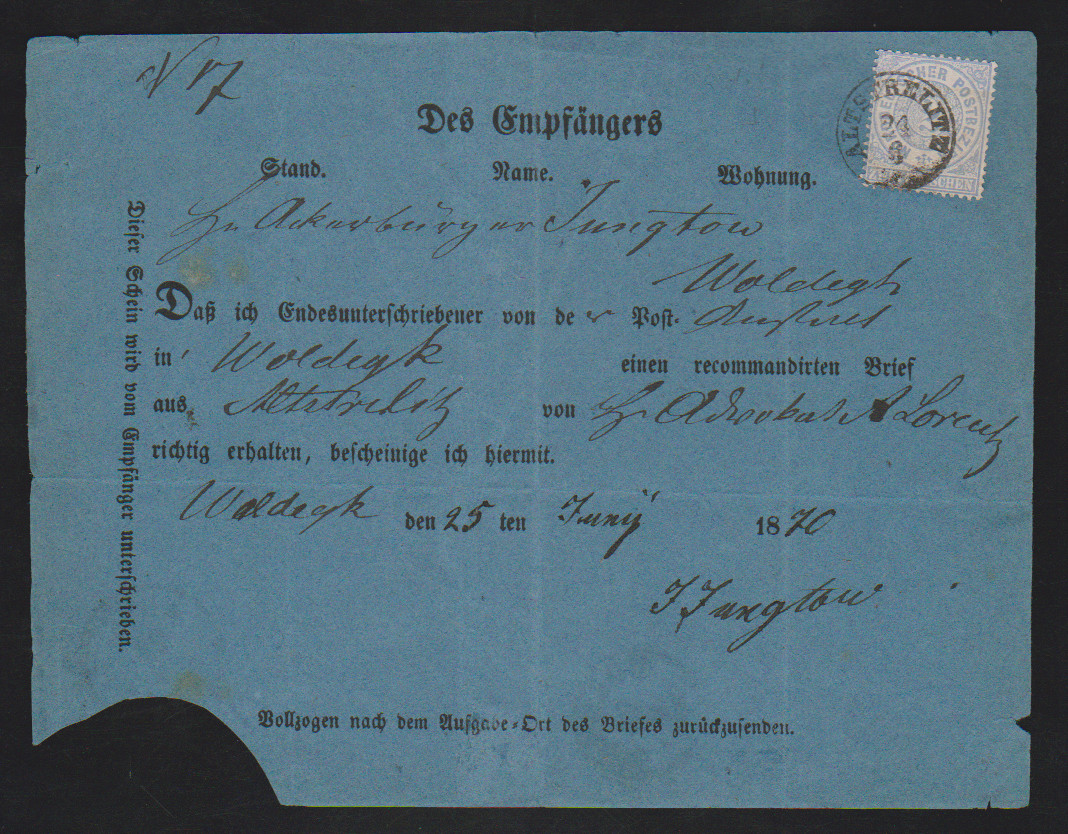 N 17
Des Empfängers
Stand. Name. Wohnung.
ALTSTRELITZ
24
6
Hr Ackerbürger Jungtow
Woldegk
Daß ich Endesunterschriebener von der Post-
in Woldegk einen recommandirten Brief
aus Altstrelitz von Hr Advokat A Lorentz
richtig erhalten, bescheinige ich hiermit.
Woldegk den 25 ten Juny 1870
J Jungtow
Vollzogen nach dem Aufgabe-Ort des Briefes zurückzusenden.
Dieser Schein wird vom Empfänger unterschrieben.